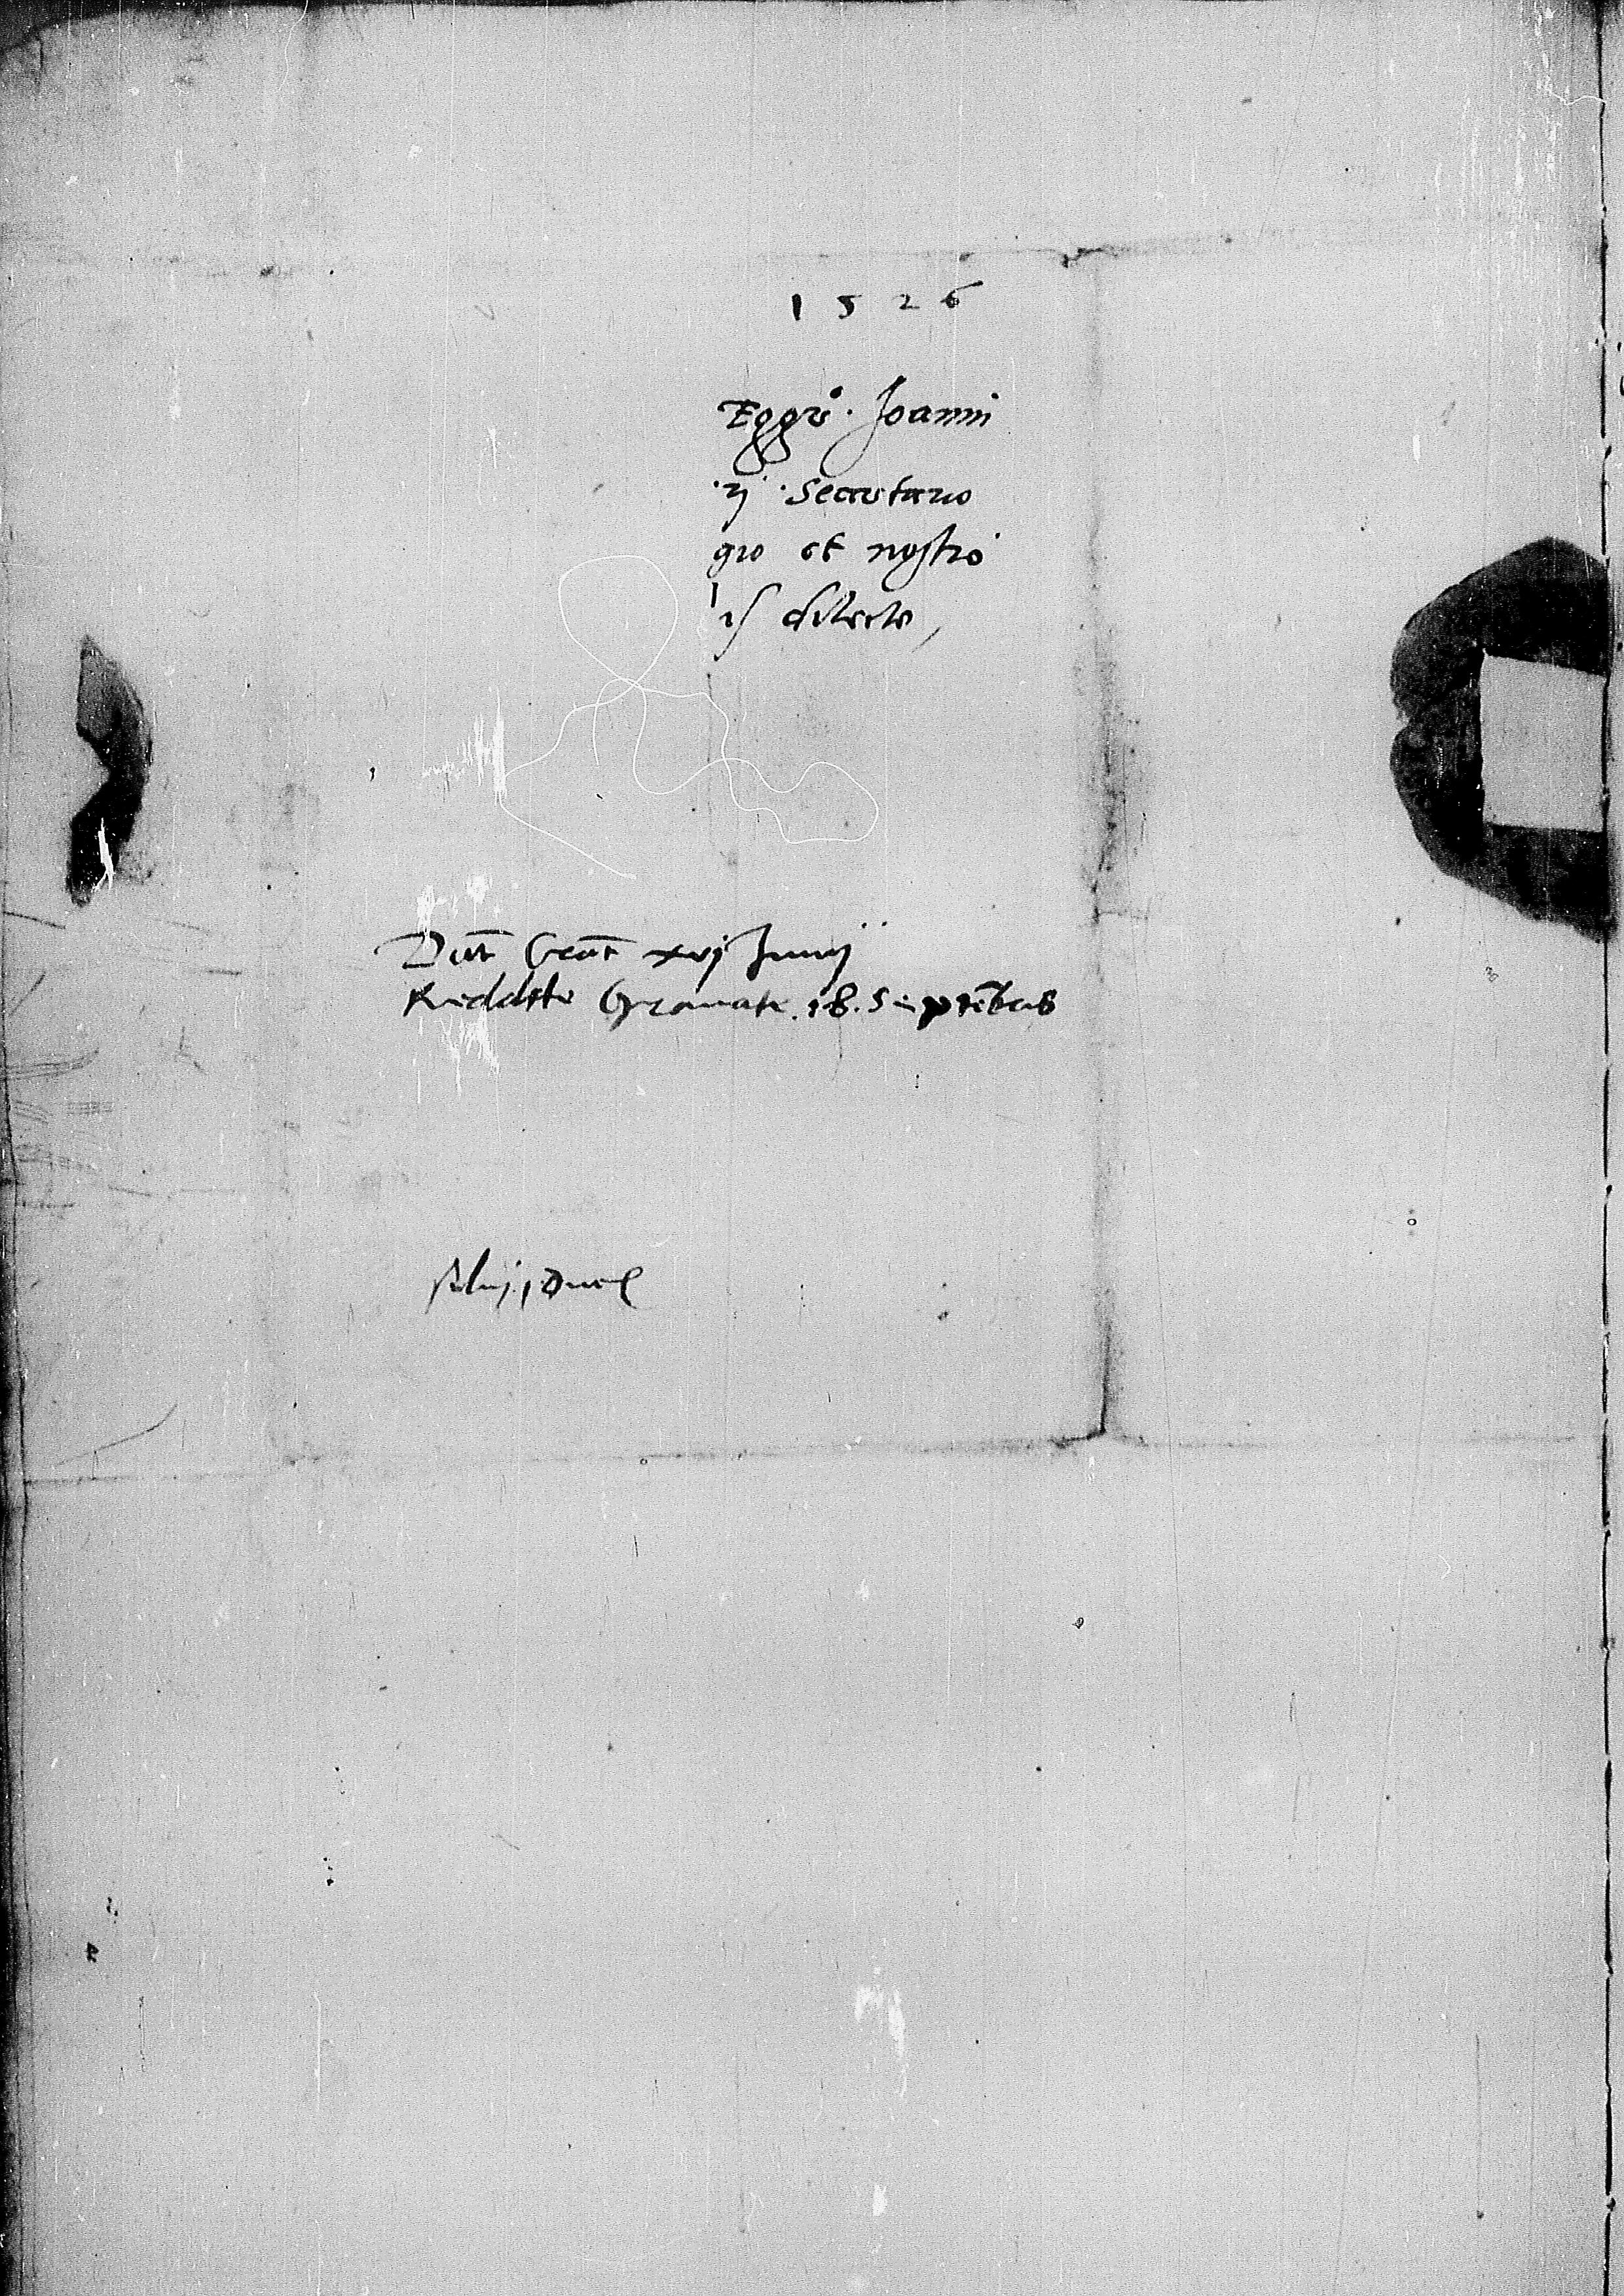 1526
Eggio. Joanni
ij. Secretario
gio et nostro
is dilecto,
Dat xvj Junij
Reddite Granate. 18. Septebris